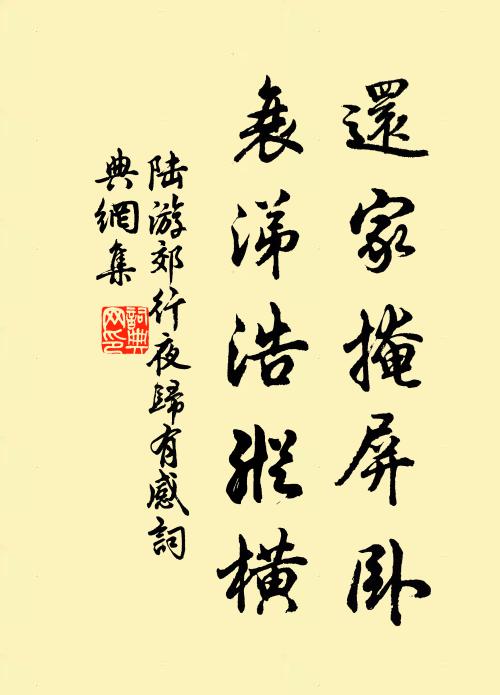 還家掩屏卧
衰涕浩縱橫
陸游郊行夜歸有感詞
典網集
詞典网印